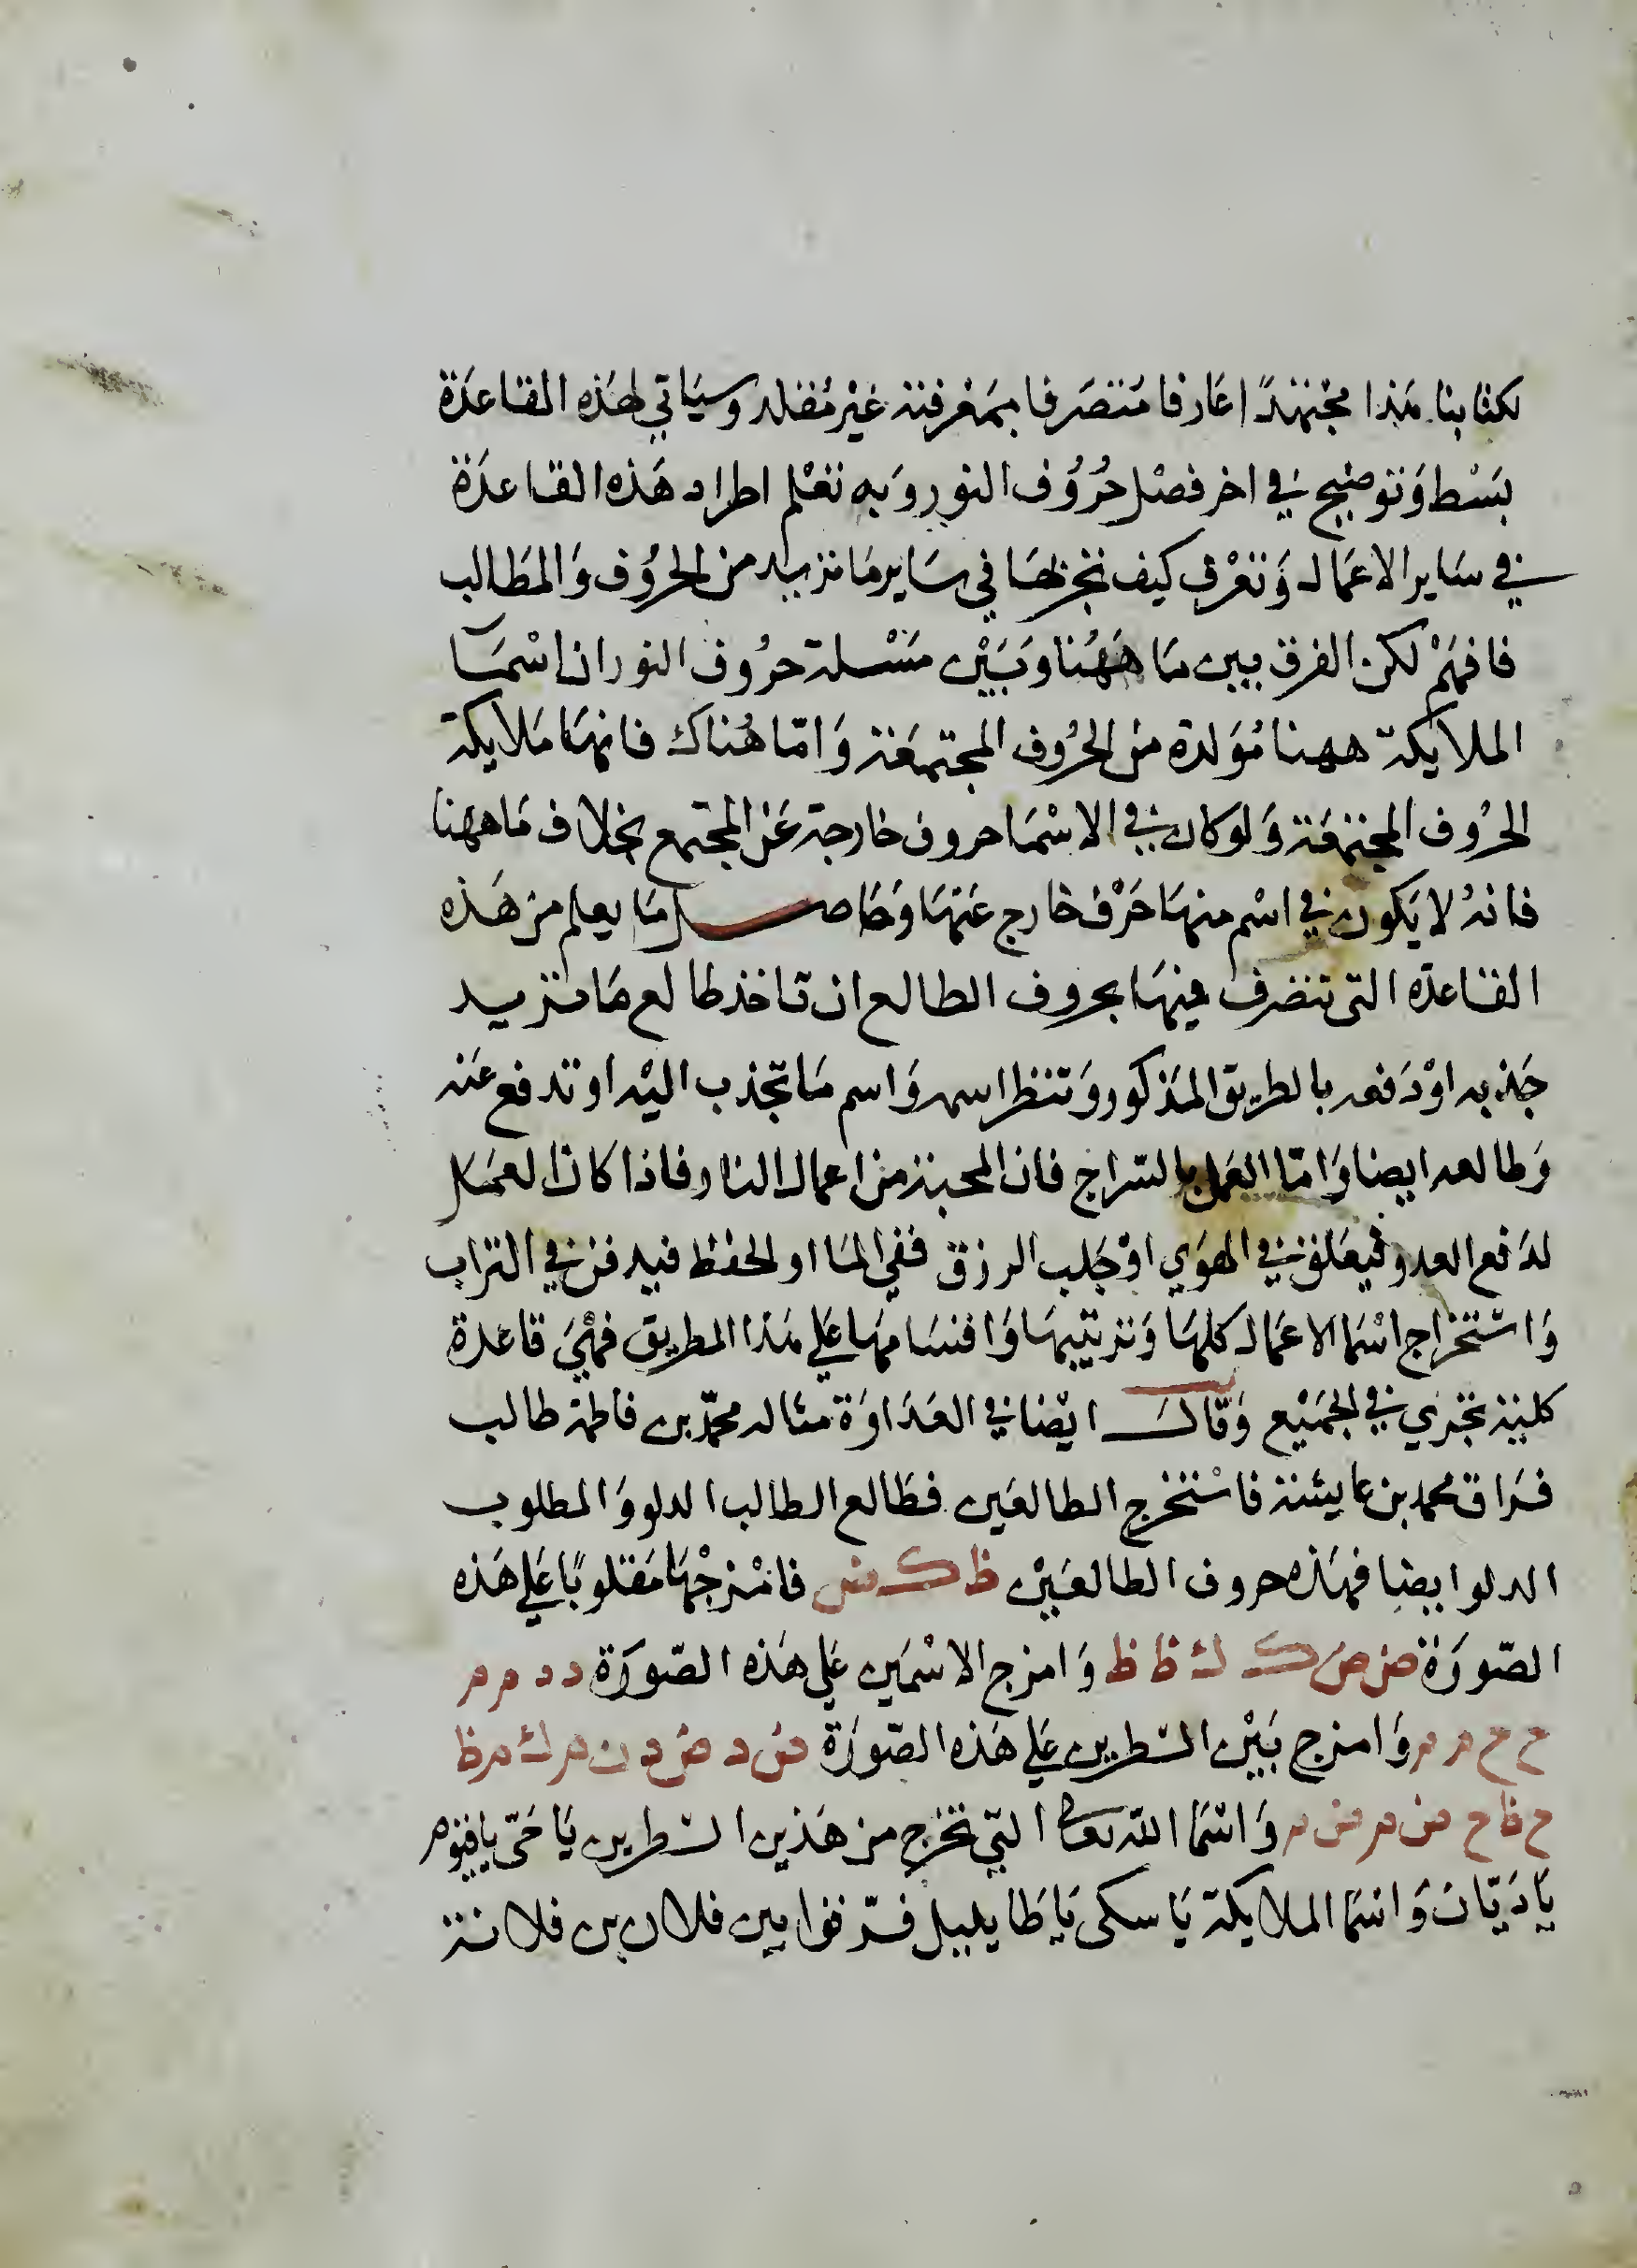 لكتابنا هذا مجتهدًا عارفا متصرفا بمعرفته غير مقلد وسياتي لهذه القاعدة
بسط وتوضيح في اخر فصل حروف النور وبه تعلم اطراد هذه القاعدة
في ساير الاعمال وتعرف كيف تجريها في ساير ما تريد من الحروف والمطالب
فافهم لكن الفرق بين ما ههنا وبين مسئلة حروف النور ان اسما
الملايكة ههنا مولدة من الحروف المجتمعة واما هناك فانها ملايكة
الحروف المجتمعة ولو كان في الاسما حروف خارجة عن المجتمع بخلاف ما ههنا
فانه لا يكون في اسم منها حرف خارج عنها وحاصل ما يعلم من هذه
القاعدة التي تتصرف فيها بحروف الطالع ان تاخذ طالع ما تريد
جذبه او دفعه بالطريق المذكور وتنظر اسمه واسم ما تجذب اليه او تدفع عنه
وطالعه ايضا واما العمل بالسراج فان المحبة من اعمال النار فاذا كان العمل
لدفع العدو فيعلق في الهوي او جلب الرزق ففي الما او لحفظ فيدفن في التراب
واستخراج اسما الاعمال كلها وترتيبها واقسامها علي هذا الطريق فهي قاعدة
كلية تجري في الجميع وقال ايضا في العداوة مثاله محمد بن فاطمة طالب
فراق محمد بن عايشة فاستخرج الطالعين فطالع الطالب الدلو والمطلوب
الدلو ايضا فهذه حروف الطالعين ظ ك ض فامزجها مقلوبًا علي هذه
الصورة ض ض ك ك ظ ظ وامزج الاسمين علي هذه الصورة د د م م
ح ح م م وامزج بين السطرين علي هذه الصورة ض د ض د ن م ك م ظ
ح ظ ح ض م ض م واسما الله تعالى التي تخرج من هذين السطرين يا حي يا قيوم
يا ديان واسما الملايكة يا سكى يا طايليل فرقوا بين فلان بن فلانة